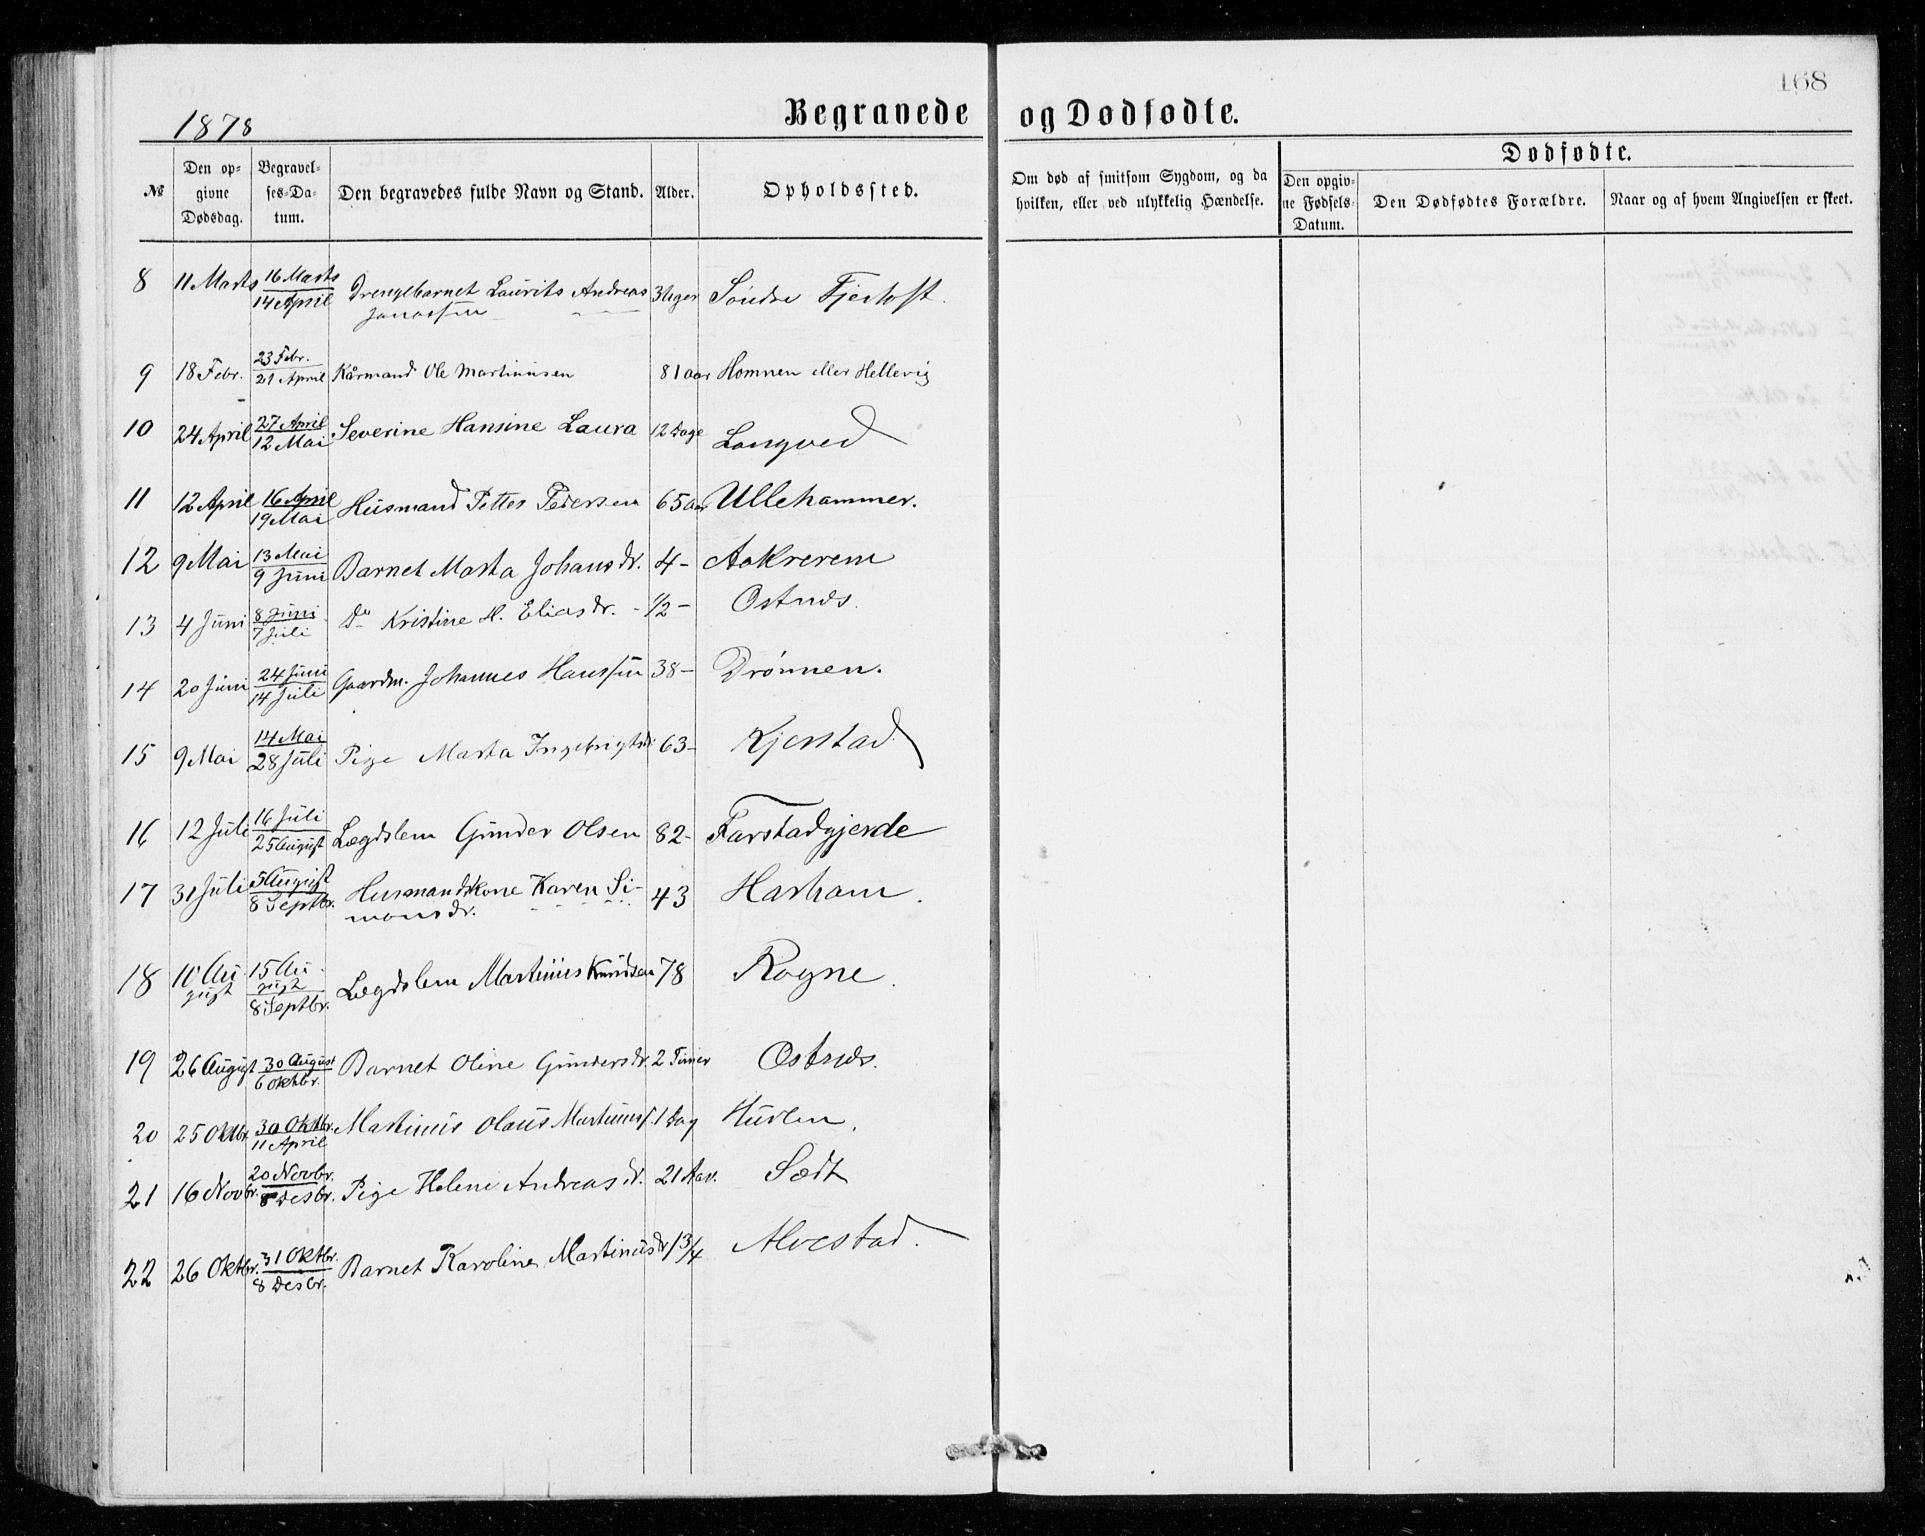 168
1878 Begravede og Dødfødte.
№ Den opgivne Dødsdag. Begravelses-Datum. Den begravedes fulde Navn og Stand. Alder. Opholdssted. Om død af smitsom Sygdom, og da hvilken, eller ved ulykkelig Hændelse. Dødfødte. Den opgivne Fødsels-Datum. Den Dødfødtes Forældre. Naar og af hvem Angivelsen er skeet.
8 11 Marts 16 Marts 14 April Drengebarnet Laurits Andreas 3 Uger Søndre Fjertoft.
Jonassøn
9 18 Febr. 23 Febr. 21 April Kårmand Ole Martinusen 81 aar Homnen eller Hellevig
10 24 April 27 April 12 Mai Severine Hansine Laura 12 Dage Longved
11 12 April 16 April 19 Mai Husmand Petter Pedersen 65 aar Ullehammer.
12 9 Mai 13 Mai 9 Juni Barnet Marta Johansdr. 4 - Aakrerem
13 4 Juni 8 Juni 7 Juli Do Kristine M. Eliasdr. - 1/2 - Ostnes.
14 20 Juni 24 Juni 14 Juli Gaardm. Johannes Hanssøn 38 - Drønnen.
15 9 Mai 14 Mai 28 Juli Pige Marta Ingebrigtsdr 63 - Kjerstad
16 12 Juli 16 Juli 25 August Lægdslem Gunder Olsen 82 - Farstadgjerde
17 31 Juli 5 August 8 Septbr. Husmandskone Karen Si- 43 Harham.
monsdr.
18 10 August 15 August 8 Septbr. Lægdslem Martinus Knudsen 78 Rogne.
19 26 August 30 August 6 Oktbr. Barnet Oline Gundersdr. 2 Timer Ostnes.
20 25 Oktbr. 30 Oktbr. 11 April Martinus Olaus Martinusf. 1 Dag Hurlen.
21 16 Novbr. 20 Novbr. 8 Desbr. Pige Helene Andreasdr. 21 Aar. Sædt
22 26 Oktbr. 31 Oktbr. 8 Desbr. Barnet Karoline Martinusdr 1 3/4 Alvestad.